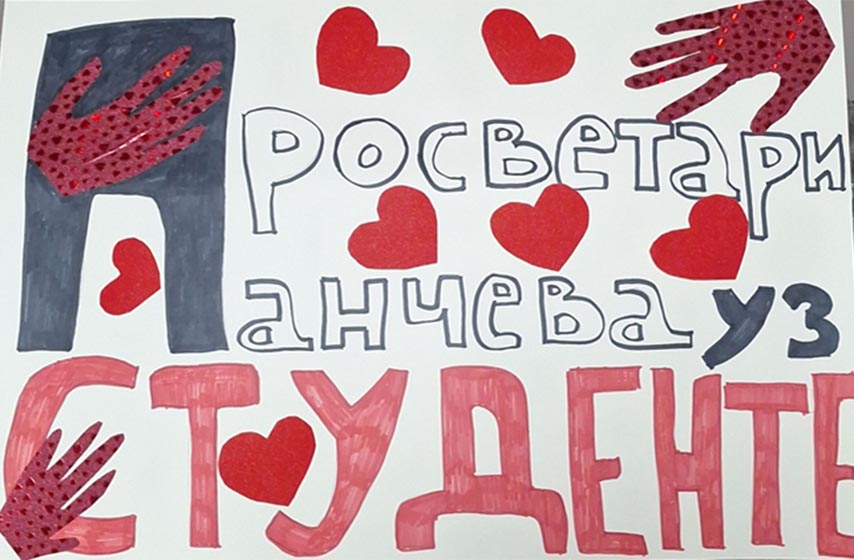 Просветари
Панчева уз
СТУДЕНТЕ